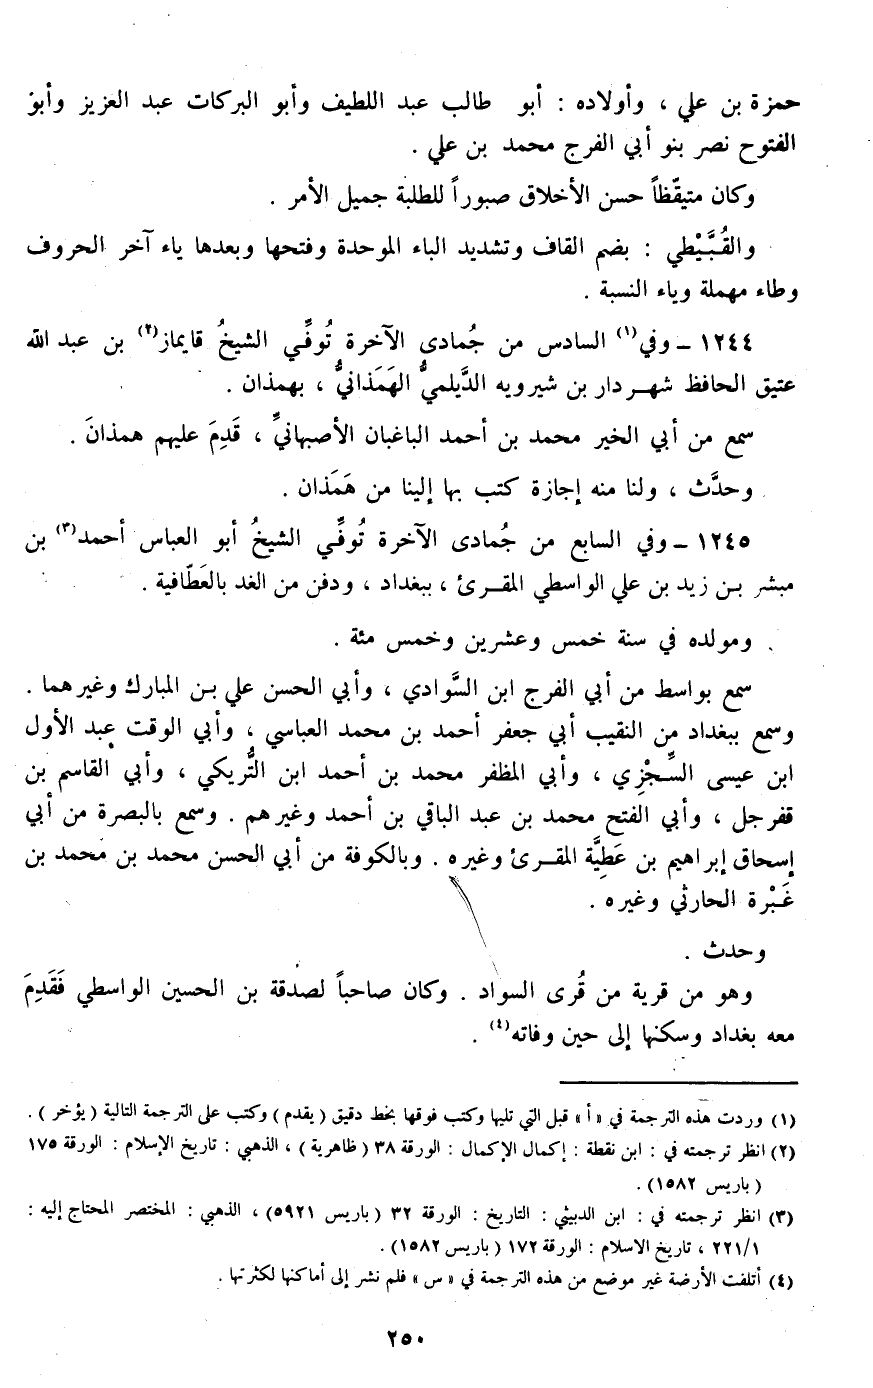 حمزة بن علي ، وأولاده : أبو طالب عبد اللطيف وأبو البركات عبد العزيز وأبو
الفتوح نصر بنو أبي الفرج محمد بن علي .
وكان متيقّظاً حسن الأخلاق صبوراً للطلبة جميل الأمر .
والقُبَّيْطي : بضم القاف وتشديد الباء الموحدة وفتحها وبعدها ياء آخر الحروف
وطاء مهملة وياء النسبة .
١٢٤٤ ـ وفي(١) السادس من جُمادى الآخرة تُوفِّي الشيخُ قايماز(٢) بن عبد الله
عتيق الحافظ شهردار بن شيرويه الدَّيلميُّ الهَمَذانيُّ ، بهمذان .
سمع من أبي الخير محمد بن أحمد الباغبان الأصبهانيِّ ، قَدِمَ عليهم همذانَ .
وحدَّث ، ولنا منه إجازة كتب بها إلينا من هَمَذان .
١٢٤٥ ـ وفي السابع من جُمادى الآخرة تُوفِّي الشيخُ أبو العباس أحمد(٣) بن
مبشر بن زيد بن علي الواسطي المقرئ ، ببغداد ، ودفن من الغد بالعَطّافية .
ومولده في سنة خمس وعشرين وخمس مئة .
سمع بواسط من أبي الفرج ابن السَّوادي ، وأبي الحسن علي بن المبارك وغيرهما .
وسمع ببغداد من النقيب أبي جعفر أحمد بن محمد العباسي ، وأبي الوقت عبد الأول
ابن عيسى السِّجْزِي ، وأبي المظفر محمد بن أحمد ابن التُّريكي ، وأبي القاسم بن
قفرجل ، وأبي الفتح محمد بن عبد الباقي بن أحمد وغيرهم . وسمع بالبصرة من أبي
إسحاق إبراهيم بن عَطِيَّة المقرئ وغيره . وبالكوفة من أبي الحسن محمد بن محمد بن
غَبْرة الحارثي وغيره .
وحدث .
وهو من قرية من قُرى السواد . وكان صاحباً لصدقة بن الحسين الواسطي فَقَدِمَ
معه بغداد وسكنها إلى حين وفاته(٤) .
(١) وردت هذه الترجمة في « أ » قبل التي تليها وكتب فوقها بخط دقيق ( يقدم ) وكتب على الترجمة التالية ( يؤخر ) .
(٢) انظر ترجمته في : ابن نقطة : إكمال الإكمال : الورقة ٣٨ ( ظاهرية ) ، الذهبي : تاريخ الإسلام : الورقة ١٧٥
( باريس ١٥٨٢ ) .
(٣) انظر ترجمته في : ابن الدبيثي : التاريخ : الورقة ٣٢ ( باريس ٥٩٢١ ) ، الذهبي : المختصر المحتاج إليه :
٢٢١/١ ، تاريخ الاسلام : الورقة ١٧٢ ( باريس ١٥٨٢ ) .
(٤) أتلفت الأرضة غير موضع من هذه الترجمة في « س » فلم نشر إلى أماكنها لكثرتها .
٢٥٠